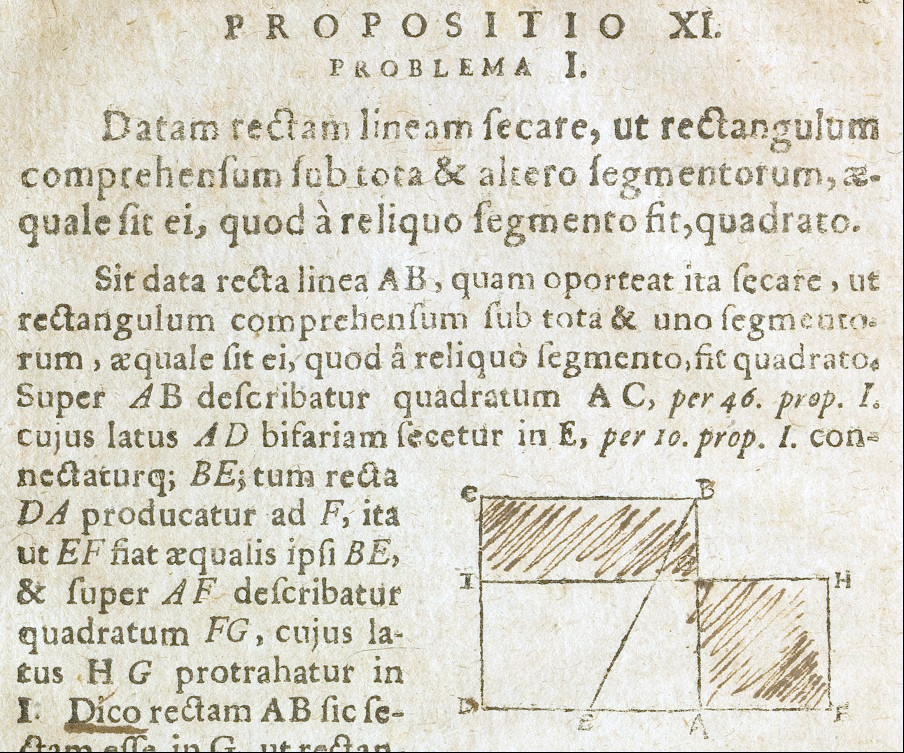 PROPOSITIO XI.
PROBLEMA I.
Datam rectam lineam ſecare, ut rectangulum
comprehenſum ſub tota & altero ſegmentorum, æ-
quale ſit ei, quod à reliquo ſegmento fit, quadrato.
Sit data recta linea AB, quam oporteat ita ſecare, ut
rectangulum comprehenſum ſub tota & uno ſegmento-
rum, æquale ſit ei, quod â reliquò ſegmento, fit quadrato.
Super AB deſcribatur quadratum AC, per 46. prop. I.
cujus latus AD bifariam ſecetur in E, per 10. prop. I. con-
nectaturq; BE; tum recta
DA producatur ad F, ita
ut EF fiat æqualis ipſi BE,
& ſuper AF deſcribatur
quadratum FG, cujus la-
tus HG protrahatur in
I. Dico rectam AB ſic ſe-
ctam eſſe in G, ut rectan-
C B
I H
D E A F